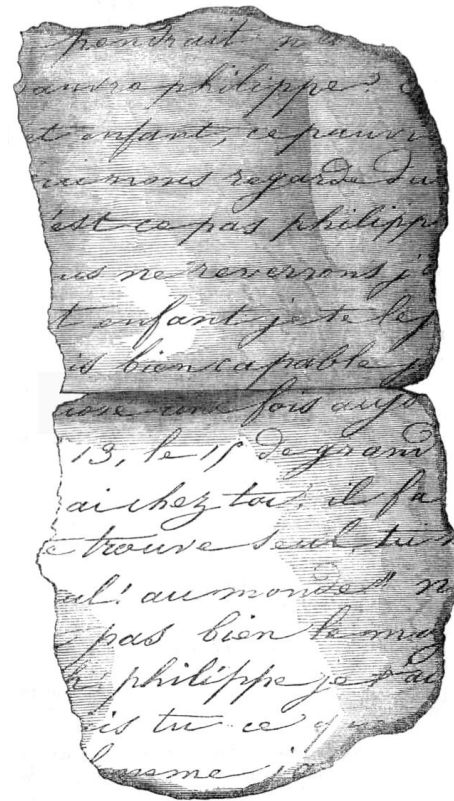 pendrait n
auvre philippe?
et enfant, ce pauvr
qui nous regarde du
'est ce pas philipp
us ne reverrons ja
t enfant je te le p
is bien capable
hose une fois auj
13, le 15 de grand
ai chez toi, il fa
e trouve seul, tu
ul! au monde
pas bien le
h! philippe je t'ai
is tu ce que
femme